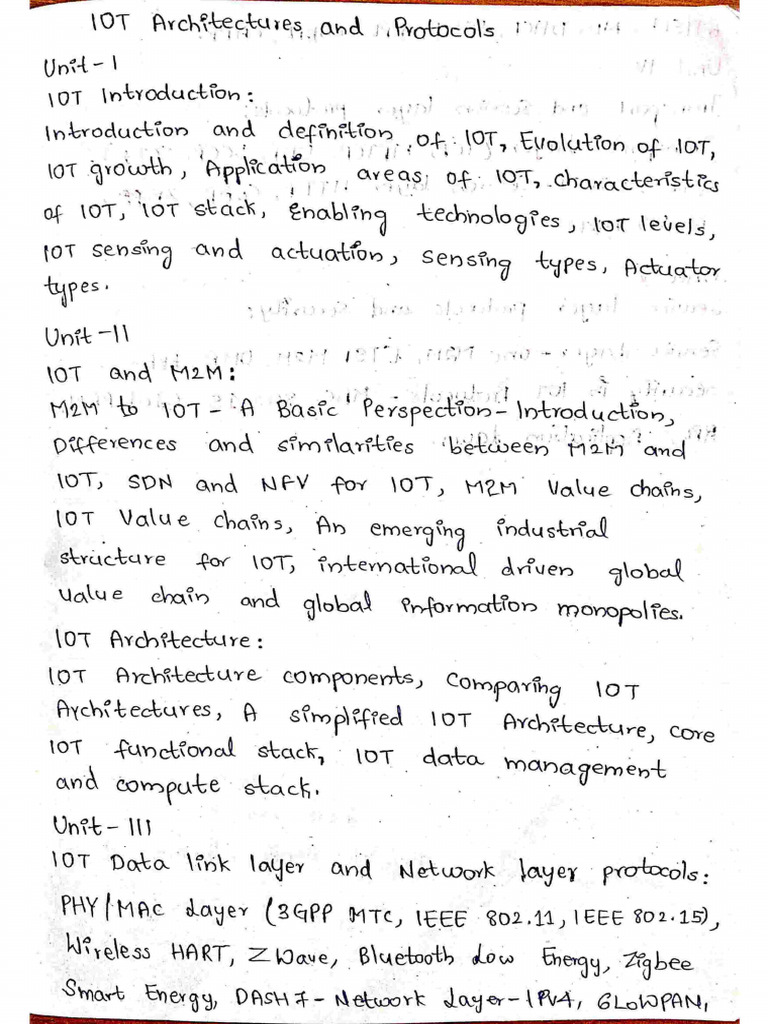 IOT Architectures and Protocols
Unit-I
IOT Introduction:
Introduction and definition of IOT, Evolution of IOT,
IOT growth, Application areas of IOT, characteristics
of IOT, IOT stack, Enabling technologies, IOT levels,
IOT sensing and actuation, sensing types, Actuator
types.
Unit-II
IOT and M2M:
M2M to IOT - A Basic Perspection-Introduction,
Differences and similarities between M2M and
IOT, SDN and NFV for IOT, M2M Value chains,
IOT Value chains, An emerging industrial
structure for IOT, international driven global
value chain and global information monopolies.
IOT Architecture:
IOT Architecture components, Comparing IOT
Architectures, A simplified IOT Architecture, core
IOT functional stack, IOT data management
and compute stack.
Unit-III
IOT Data link layer and Network layer protocols:
PHY/MAC Layer (3GPP MTC, IEEE 802.11, IEEE 802.15),
Wireless HART, Z Wave, Bluetooth Low Energy, Zigbee
Smart Energy, DASH7-Network Layer-IPV4, 6LOWPAN,